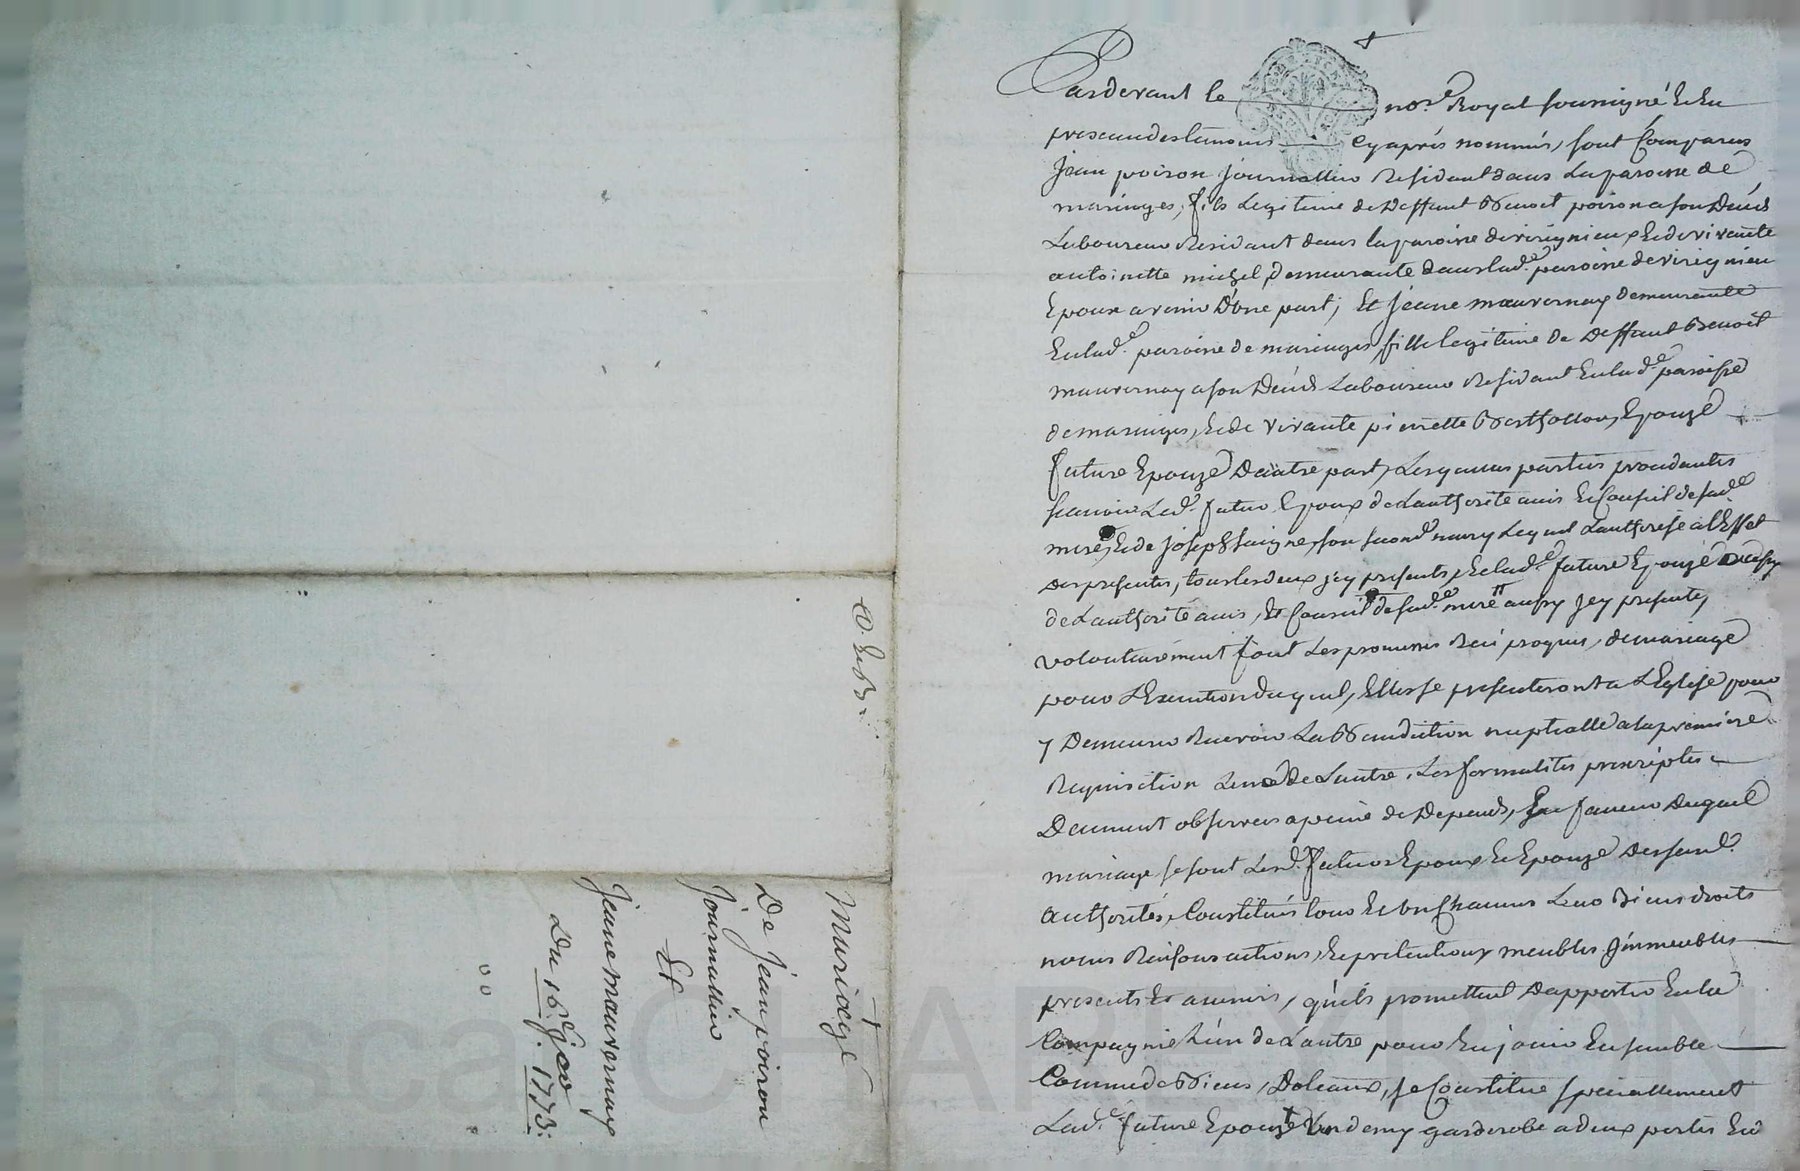 Mariage
De Jean poiron
Journallier
Et
Jeane mauvernay
Du 16e. janv. 1773.
Pardevant le nore. Royal soussigné Et En
presence des temoins cy après nommés, sont Comparus
Jean poiron journallier Residant dans La paroisse de
maringes, fils Legitime de Deffunt Benoit poiron a son Décéds
Laboureur Residant dans la paroisse de virignieux, Et de vivante
antoinette michel, demeurante dans lade. paroisse de virignieu
Epoux avenir D'une part; Et Jeane mauvernay demeurante
En lade. paroisse de maringes fille legitime de Deffunt Benoit
mauvernay a son Décéds Laboureur Residant En lade. paroisse
de maringes, Et de vivante pierrette Berthollon, Epouze
future Epouze D'autre part, Lesquelles parties procedantes
scavoir Led. futur Epoux de Lauthorité avis Et Conseil de sade.
mere, Et de joseph son second mary Lequel Lauthorise a lEffet
des presentes, tous les deux jcy presents, Et lade. future Epouze
de Lauthorité avis, Et Conseil de sade. mere aussy jcy presente,
volontairement font Les promesses Reciproques, de mariage
pour LExecution duquel, Elles se presenteront a LEglise pour
y Demeurer Recevoir La Benediction nuptialle a la premiere
Requisition Lune De Lautre, Les formalités prescriptes
Deument observées a peine de Depends, En faveur Duquel
mariage se sont Lesd. futurs Epoux Et Epouze Desused.
authorités, Constitués tous Et Un Chacuns Leurs Biens droits
noms Raisons actions, Et pretentions meubles jmmeubles
presents Et avenirs, qu'ils promettent Dapporter En la
Compagnie L'un de Lautre pour En jouir Ensemble
Comme de Biens Doteaux, se Constitue specialement
Lade. future Epouze Un demy garderobe a deux portes En